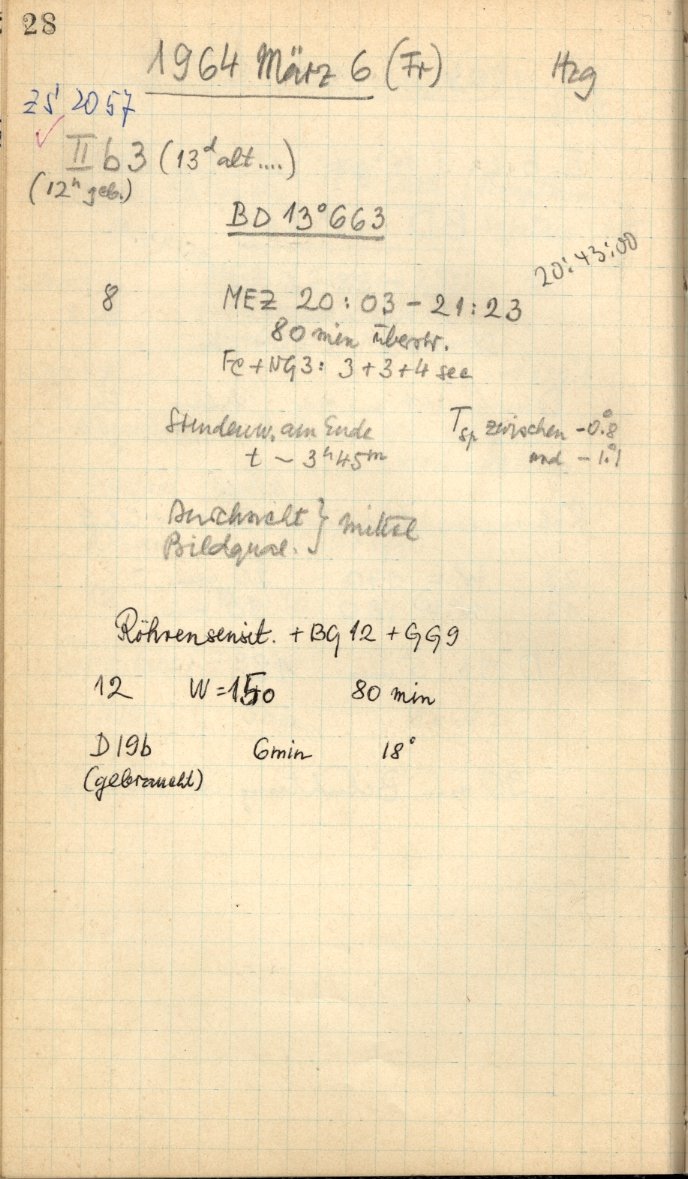 28
1964 März 6 (Fr) Hzg
ZS 2057
✓
II b 3 (13ᵈ alt....)
(12ʰ geb.)
BD 13°663
20:43:00
8 MEZ 20:03 - 21:23
80 min überstr.
Fe + NG3: 3+3+4 sec
Stundenw. am Ende
t ~ 3ʰ45ᵐ
T_sp zwischen -0.°8
und -1.°1
Durchsicht } mittel
Bildqual.
Röhrensensit. + BG 12 + GG9
12 W = 80 min
D19b 6min 18°
(gebraucht)